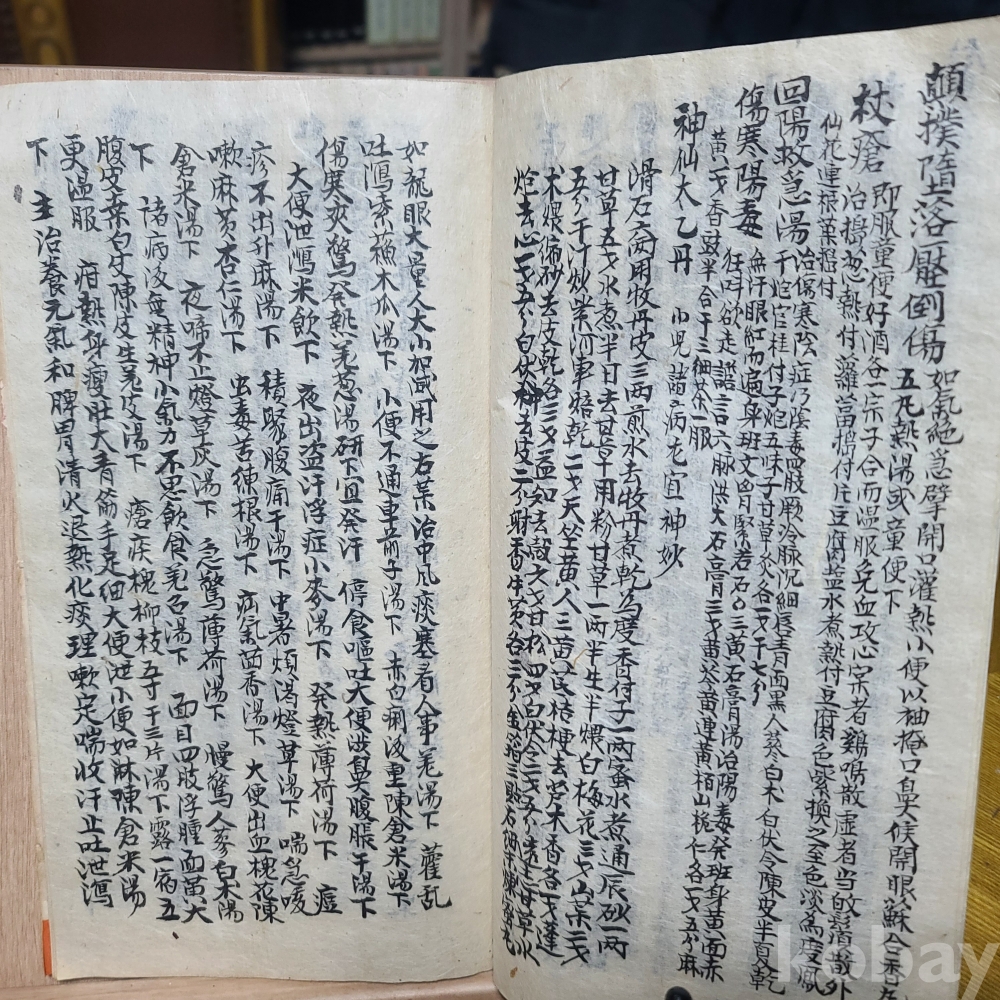 顚撲墮落壓倒傷 如氣絶急擘開口灌熱小便以袖掩口鼻候開眼蘇合香
五丸熱湯或童便下
即服童便好酒各一宗子合而温服免血攻心
杖瘡 治搗葱熱付蘿葍搗付片豆腐盐水煮熱付豆腐色紫換之至色淡為度
仙花連根葉搗付
回陽救急湯 治傷寒陰症乃陰毒四肢厥冷脉沉細唇青面黑人蔘白木白伏令陳皮半夏乾
干炮官桂付子炮五味子甘草炙各一戈干七分
傷寒陽毒 無汗眼紅而遍身班文
狂呌欲走譫言六脉洪大石膏三戈黄芩黄連黄栢山梔仁各一戈五分麻
黄一戈香豉半合干三細茶一服
神仙太乙丹 小児諸病尤宜神妙
滑石六两用牧丹皮三两煎水去牧丹煮乾為度香付子一两蜜水煮通辰砂一两
甘草五戈水煮半日去甘草用粉甘草一两半生半煨白梅花三戈山藥二戈
五分干汁炒紫河車焙乾二戈天竺黄人三黄芪桔梗去芦木香各一戈蓬
术煨縮砂去皮乾各三戈益知去殼六戈甘松四戈白伏令二戈五分遠志甘草水
炮去心一戈五分白伏神去皮二分射香牛黄各三分金箔三
如龍眼大量人大小加减用之右藥治中凡痰塞看人事羌湯下 藿乱
吐瀉紫蘓木瓜湯下 小便不通車前子湯下 赤白痢後重陳倉米湯下
傷寒夾驚発熱羌葱湯研下宜発汗 停食嘔吐大便洪臭腹脹干湯下
大便泄瀉米飲下 夜出盗汗浮症小麥湯下 発熱薄荷湯下 痘
疹不出升麻湯下 積聚腹痛干湯下 中暑煩渴燈草湯下 喘急咳
嗽麻黄杏仁湯下 虫毒苦練根湯下 疝氣茴香湯下 大便出血槐花陳
倉米湯下 夜啼不止燈草灰湯下 急驚薄荷湯下 慢驚人蔘白朮湯
下 諸病後無精神小氣力不思飲食羌召湯下 面目四肢浮腫血黄大
腹皮桒白皮陳皮生羌皮湯下 瘧疾槐柳枝五寸干三片湯下露一宿五
更温服 疳熱身瘦肚大青筋手足细大便泄小便如淋陳倉米湯
下 主治養元氣和脾胃清火退熱化痰理嗽定喘收汗止吐泄瀉
kobay